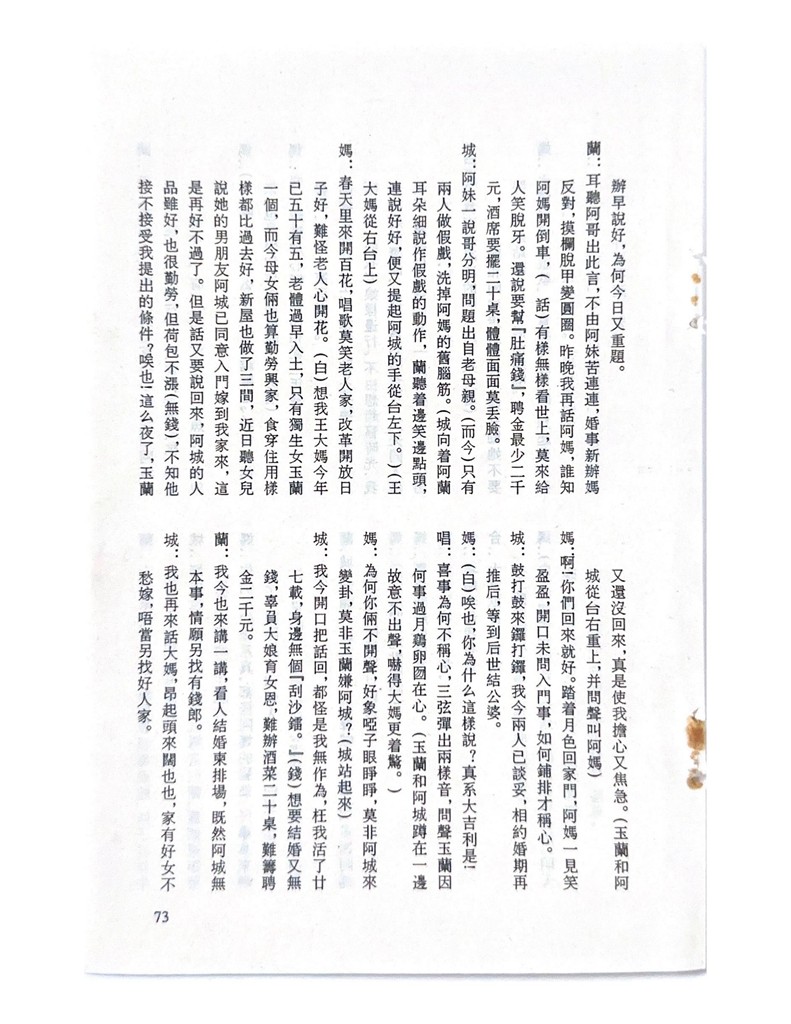 辦早說好，為何今日又重題。
蘭：耳聽阿哥出此言，不由阿妹苦連連，婚事新辦媽
反對，摸欄脫甲變圓圈。昨晚我再話阿媽，誰知
阿媽開倒車，（話）有樣無樣看世上，莫來給
人笑脫牙。還說要幫『肚痛錢』，聘金最少二千
元，酒席要擺二十桌，體體面面莫丟臉。
城：阿妹一說哥分明，問題出自老母親。（而今）只有
兩人做假戲，洗掉阿媽的舊腦筋。（城向着阿蘭
耳朵細說作假戲的動作，蘭聽着邊笑邊點頭，
連說好好，便又提起阿城的手從台左下。）（王
大媽從右台上）
媽：春天里來開百花，唱歌莫笑老人家，改革開放日
子好，難怪老人心開花。（白）想我王大媽今年
已五十有五，老體過早入土，只有獨生女玉蘭
一個，而今母女倆也算勤勞興家，食穿住用樣
樣都比過去好，新屋也做了三間，近日聽女兒
說她的男朋友阿城已同意入門嫁到我家來，這
是再好不過了。但是話又要說回來，阿城的人
品雖好，也很勤勞，但荷包不漲（無錢），不知他
接不接受我提出的條件？唉也！這么夜了，玉蘭
又還沒回來，真是使我擔心又焦急。（玉蘭和阿
城從台右重上，并問聲叫阿媽）
媽：啊！你們回來就好。踏着月色回家門，阿媽一見笑
盈盈，開口未問入門事，如何鋪排才稱心。
城：鼓打鼓來鑼打鑼，我今兩人已談妥，相約婚期再
推后，等到后世結公婆。
媽：（白）唉也，你為什么這樣說？真系大吉利是！
唱：喜事為何不稱心，三弦彈出兩樣音，問聲玉蘭因
何事過月鷄卵囫在心。（玉蘭和阿城蹲在一邊
故意不出聲，嚇得大媽更着驚。）
媽：為何你倆不開聲，好象啞子眼睜睜，莫非阿城來
變卦，莫非玉蘭嫌阿城？（城站起來）
城：我今開口把話回，都怪是我無作為，枉我活了廿
七載，身邊無個『刮沙鐳。』（錢）想要結婚又無
錢，辜員大娘育女恩，難辦酒菜二十桌，難籌聘
金二千元。
蘭：我今也來講一講，看人結婚柬排場，既然阿城無
本事，情願另找有錢郎。
城：我也再來話大媽，昂起頭來闊也也，家有好女不
愁嫁，唔當另找好人家。
73